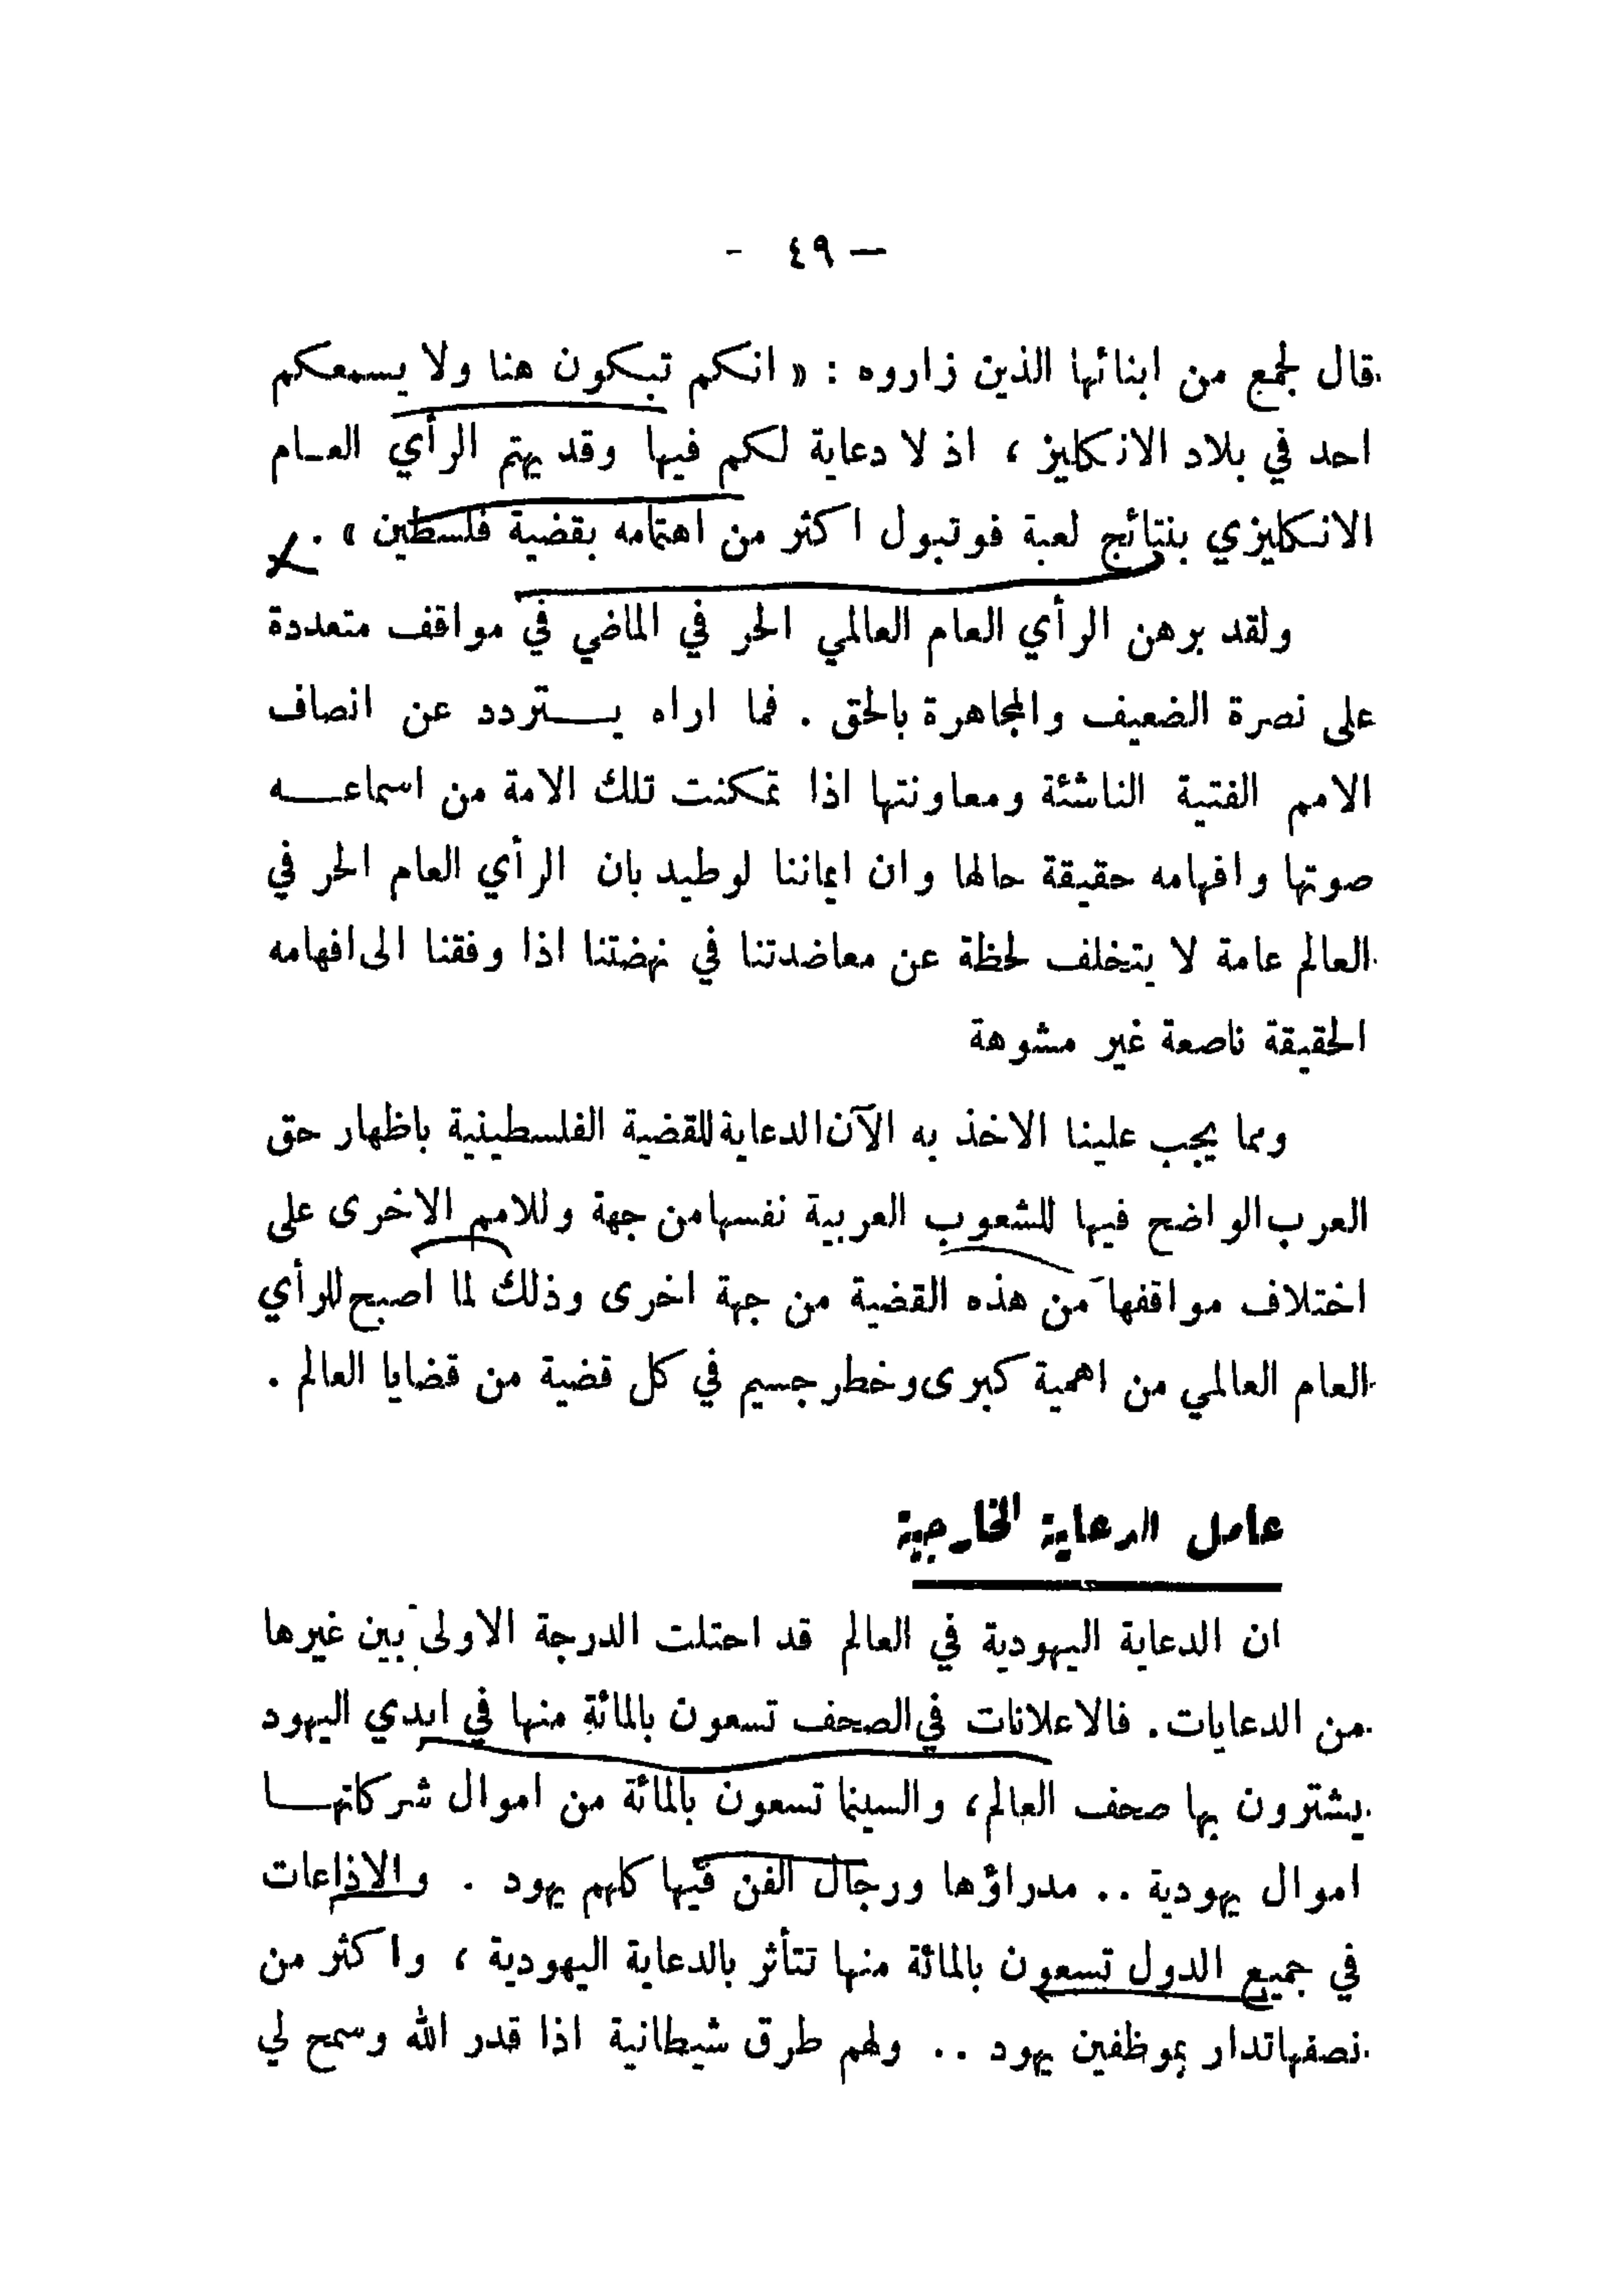 — ٤٩ -
قال لجمع من ابنائها الذين زاروه : « انكم تبكون هنا ولا يسمعكم
احد في بلاد الانكليز ، اذ لا دعاية لكم فيها وقد يهتم الرأي العـام
الانكليزي بنتائج لعبة فوتبول اكثر من اهتمامه بقضية فلسطين » .
ولقد برهن الرأي العام العالمي الحر في الماضي في مواقف متعددة
على نصرة الضعيف والمجاهرة بالحق . فما اراه يـــتردد عن انصاف
الامم الفتية الناشئة ومعاونتها اذا تمكنت تلك الامة من اسماعـــه
صوتها وافهامه حقيقة حالها وان ايماننا لوطيد بان الرأي العام الحر في
العالم عامة لا يتخلف لحظة عن معاضدتنا في نهضتنا اذا وفقنا الى افهامه
الحقيقة ناصعة غير مشوهة
ومما يجب علينا الاخذ به الآن الدعاية للقضية الفلسطينية باظهار حق
العرب الواضح فيها للشعوب العربية نفسها من جهة وللامم الاخرى على
اختلاف مواقفها من هذه القضية من جهة اخرى وذلك لما اصبح للرأي
العام العالمي من اهمية كبرى وخطر جسيم في كل قضية من قضايا العالم .
عامل الدعاية الخارجية
ان الدعاية اليهودية في العالم قد احتلت الدرجة الاولى بين غيرها
من الدعايات . فالاعلانات في الصحف تسعون بالمائة منها في ايدي اليهود
يشترون بها صحف العالم ، والسينما تسعون بالمائة من اموال شركاتهـــا
اموال يهودية .. مدراؤها ورجال الفن فيها كلهم يهود . والاذاعات
في جميع الدول تسعون بالمائة منها تتأثر بالدعاية اليهودية ، واكثر من
نصفها تدار بموظفين يهود .. ولهم طرق شيطانية اذا قدر الله وسمح لي